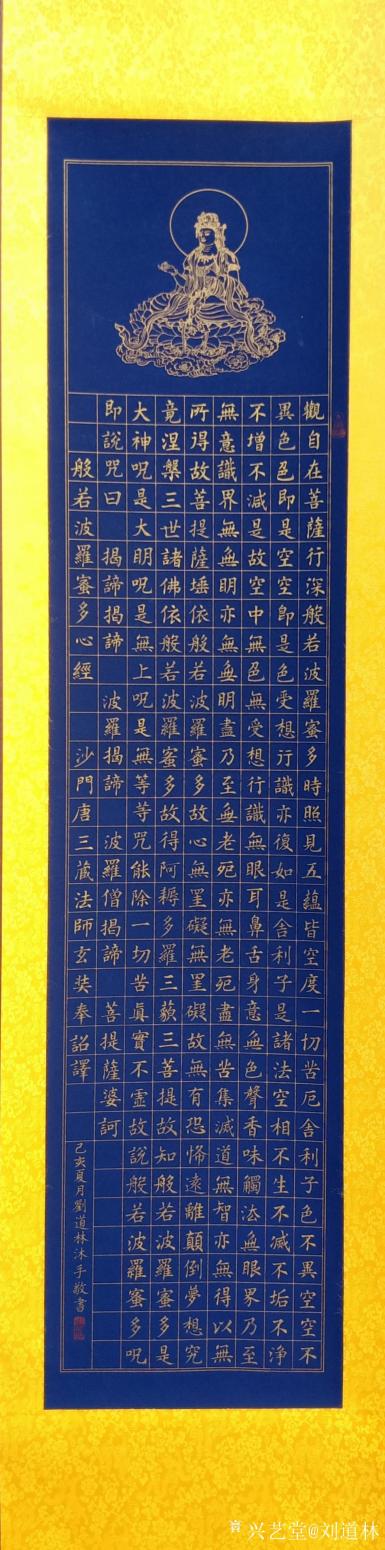 觀自在菩薩行深般若波羅蜜多時照見五蘊皆空度一切苦厄舍利子色不異空空不
異色色即是空空即是色受想行識亦復如是舍利子是諸法空相不生不滅不垢不淨
不增不減是故空中無色無受想行識無眼耳鼻舌身意無色聲香味觸法無眼界乃至
無意識界無無明亦無無明盡乃至無老死亦無老死盡無苦集滅道無智亦無得以無
所得故菩提薩埵依般若波羅蜜多故心無罣礙無罣礙故無有恐怖遠離顛倒夢想究
竟涅槃三世諸佛依般若波羅蜜多故得阿耨多羅三藐三菩提故知般若波羅蜜多是
大神咒是大明咒是無上咒是無等等咒能除一切苦真實不虛故說般若波羅蜜多咒
即說咒曰 揭諦揭諦 波羅揭諦 波羅僧揭諦 菩提薩婆訶
般若波羅蜜多心經 沙門唐三藏法師玄奘奉詔譯
己亥夏月劉道林沐手敬書
兴艺堂@刘道林